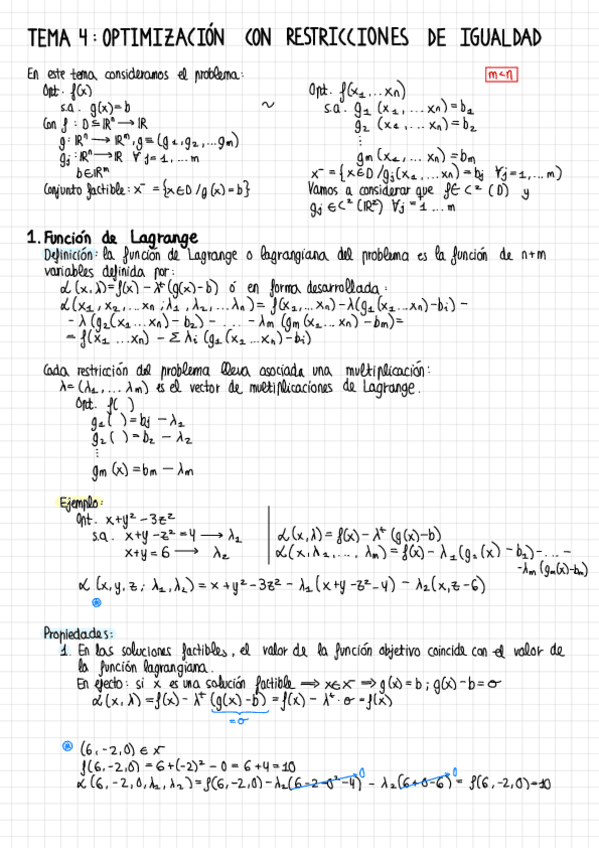 TEMA 4: OPTIMIZACIÓN CON RESTRICCIONES DE IGUALDAD
En este tema consideramos el problema:
m<n
Opt. f(x)
s.a. g(x)=b
Con f: D⊆ℝⁿ → ℝ
g: ℝⁿ → ℝᵐ, g=(g₁,g₂,...gm)
gj: ℝⁿ → ℝ ∀j=1,...m
b∈ℝᵐ
Conjunto factible: x⁻={x∈D/g(x)=b}
~
Opt. f(x₁,...xn)
s.a. g₁(x₁,...xn)=b₁
g₂(x₁...xn)=b₂
⋮
gm(x₁...xn)=bm
x⁻={x∈D/gj(x₁,...xn)=bj ∀j=1,...m)
Vamos a considerar que f∈C²(D) y
gj∈C²(ℝ²) ∀j=1...m
1. Función de Lagrange
Definición: la función de Lagrange o lagrangiana del problema es la función de n+m
variables definida por:
L(x,λ)=f(x)-λᵗ(g(x)-b) ó en forma desarrollada:
L(x₁,x₂,...xn;λ₁,λ₂,...λn)=f(x₁,...xn)-λ(g₁(x₁...xn)-bi)-
-λ(g₂(x₁...xn)-b₂)-...-λm(gm(x₁...xn)-bm)=
=f(x₁...xn)-Σλi(g₁(x₁...xn)-bi)
Cada restricción del problema lleva asociada una multiplicación:
λ=(λ₁,...λm) es el vector de multiplicaciones de Lagrange.
Opt. f( )
g₁( )=bj-λ₁
g₂( )=b₂-λ₂
⋮
gm(x)=bm-λm
Ejemplo:
Opt. x+y²-3z²
s.a. x+y-z²=4 → λ₁
x+y=6 → λ₂
L(x,λ)=f(x)-λᵗ(g(x)-b)
L(x,λ₁,...,λm)=f(x)-λ₁(g₁(x)-b₁)-...-
-λm(gm(x)-bm)
L(x,y,z;λ₁,λ₂)=x+y²-3z²-λ₁(x+y-z²-4)-λ₂(x,z-6)
Propiedades:
1. En las soluciones factibles, el valor de la función objetivo coincide con el valor de
la función lagrangiana.
En efecto: si x es una solución factible ⟹ x∈x⁻ ⟹ g(x)=b; g(x)-b=0
L(x,λ)=f(x)-λᵗ(g(x)-b)=f(x)-λᵗ·0=f(x)
=0
(6,-2,0)∈x⁻
f(6,-2,0)=6+(-2)²-0=6+4=10
L(6,-2,0,λ₁,λ₂)=f(6,-2,0)-λ₁(6-2-0²-4)⁰-λ₂(6+0-6)⁰=f(6,-2,0)=10